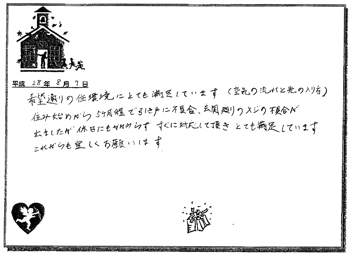 平成 28年 8月 7日
希望通りの住環境にとても満足しています (空気の流れと光の入り方)
住み始めから 3ヶ月程で引き戸に不具合、玄関廻りのメジの不具合が
出ましたが 休日にもかかわらず すぐに対応して頂き とても満足しています
これからも宜しくお願いします